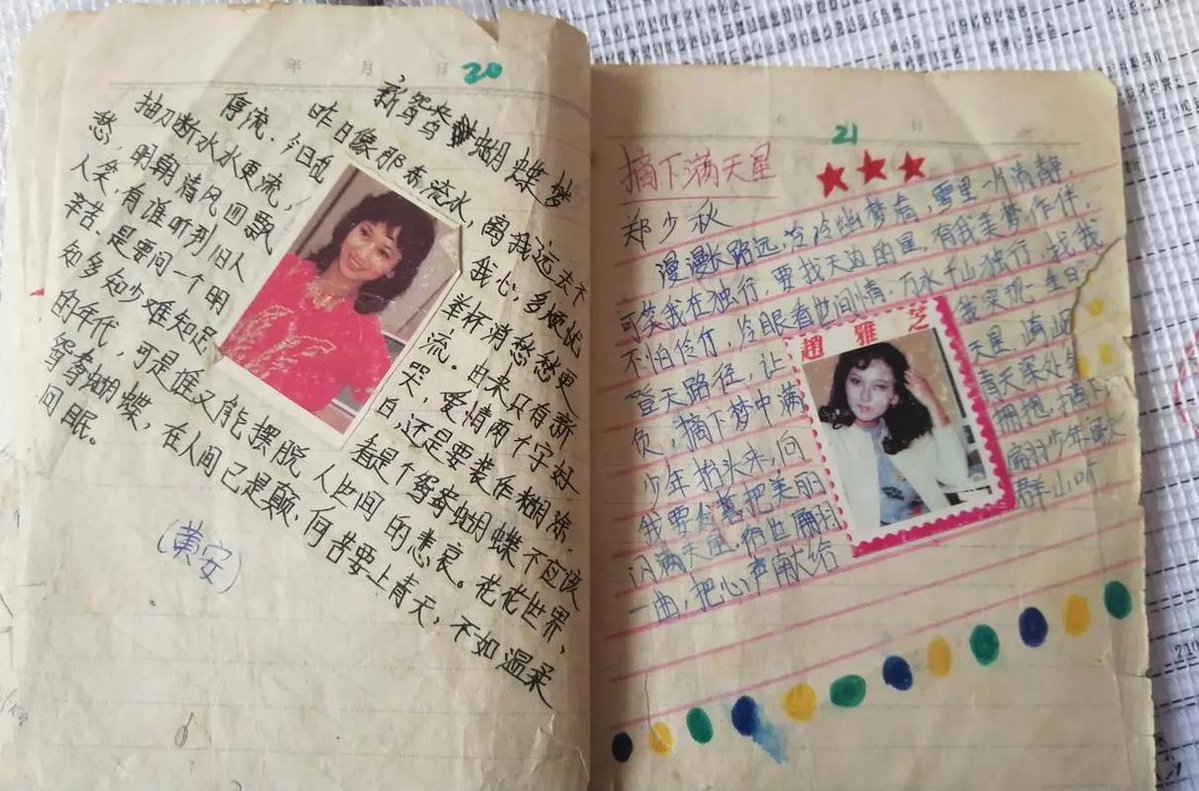 年 月 日 20
新鸳鸯蝴蝶梦
昨日像那东流水，离我远去不
停流．今日乱我心，多烦忧
抽刀断水水更流，举杯消愁愁更
愁，明朝清风四飘流．由来只有新
人笑，有谁听到旧人哭，爱情两个字好
辛苦．是要问一个明白，还是要装作糊涂．
知多知少难知足看是个鸳鸯蝴蝶不应该
的年代，可是谁又能摆脱人世间的悲哀。花花世界，
鸳鸯蝴蝶，在人间已是颠，何苦要上青天，不如温柔
同眠。
(黄安)
21 日
摘下满天星
郑少秋
漫漫长路远，冷冷幽梦清，雪里一片清静．
可笑我在独行，要找天边的星，有我美梦作伴，
不怕伶仃，冷眼看世间情，万水千山独行，找我
登天路径，让我实现一生
负，摘下梦中满天星，崎岖
少年抬头来，向青天深处
我要发誓把美丽拥抱，摘下
闪满天星，俗世翩翩少年
一曲，把心声献给群山听
趙雅芝